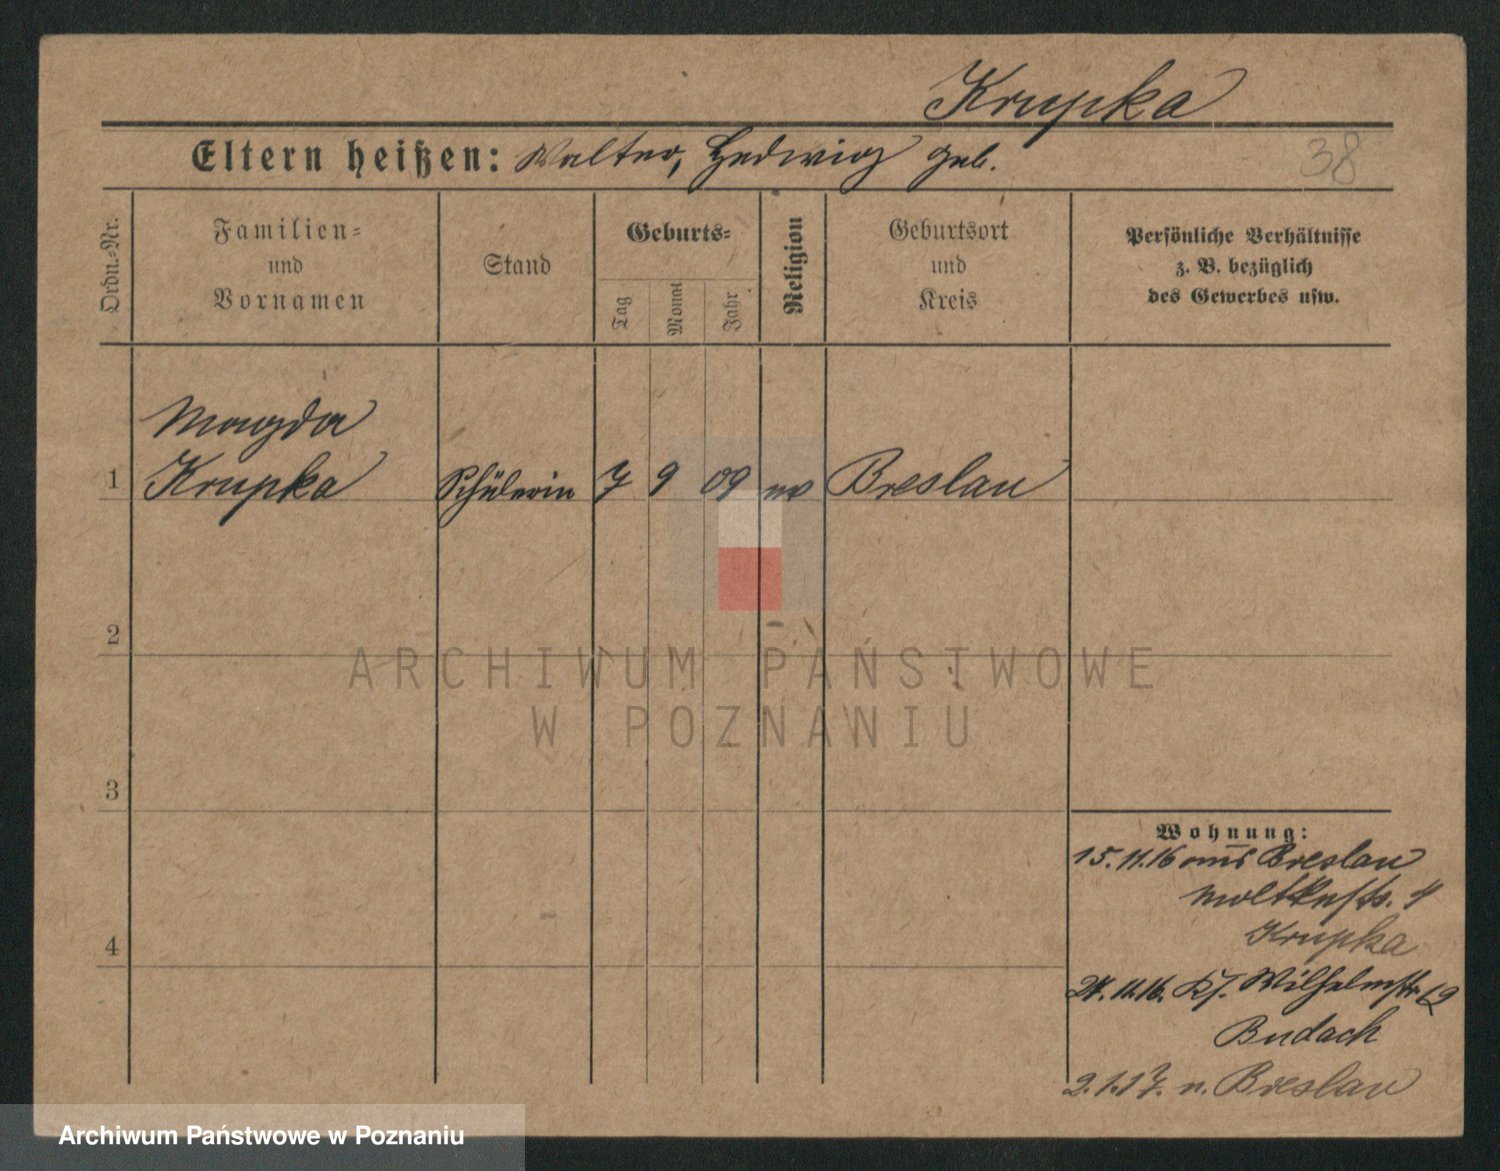 Krupka
Eltern heißen: Walter, Hedwig geb.
38
Ordn.-Nr.
Familien-
und
Vornamen
Stand
Geburts-
Tag
Monat
Jahr
Religion
Geburtsort
und
Kreis
Persönliche Verhältnisse
z. B. bezüglich
des Gewerbes usw.
Magda
1 Krupka Schülerin 7 9 09 ev Breslau
2
ARCHIWUM PAŃSTWOWE
W POZNANIU
3
Wohnung:
15.11.16 aus Breslau
Moltkestr. 4
Krupka
4
11.16. Kl. Wilhelmstr 12
Budach
2.1.17. n. Breslau
Archiwum Państwowe w Poznaniu